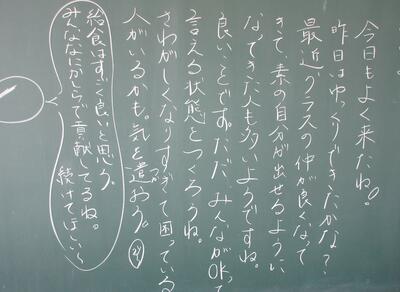 今日もよく来たね。
昨日はゆっくりできたかな?
最近、クラスの仲が良くなって
きて、素の自分が出せるように
なってきた人も多いようですね。
良いことです。ただ、みんながOKって
言える状態をつくろうね。
さわがしくなりすぎて困っている
人がいるかも。気を遣おう。
つか
給食はすごく良いと思う。
みんななにかしらで貢献してるね。
続けてほしい〜